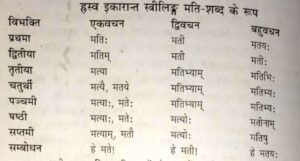 ह्रस्व इकारान्त स्त्रीलिङ्ग मति-शब्द के रूप
विभक्ति एकवचन द्विवचन बहुवचन
प्रथमा मतिः मती मतयः
द्वितीया मतिम् मती मतीः
तृतीया मत्या मतिभ्याम् मतिभिः
चतुर्थी मत्यै, मतये मतिभ्याम् मतिभ्यः
पञ्चमी मत्याः, मतेः मतिभ्याम् मतिभ्यः
षष्ठी मत्याः, मतेः मत्योः मतीनाम्
सप्तमी मत्याम्, मतौ मत्योः मतिषु
सम्बोधन हे मते! हे मती! हे मतयः!